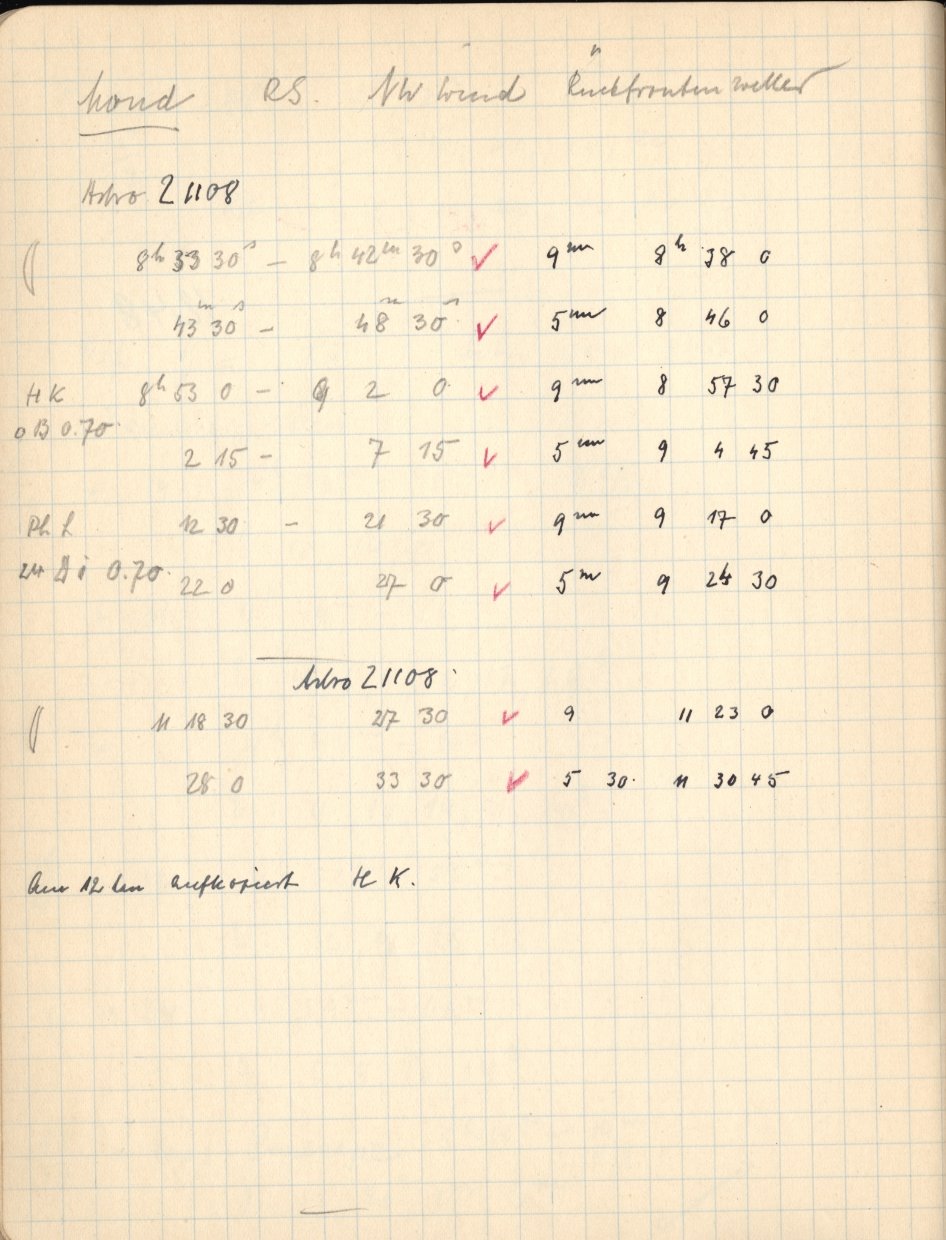 Mond RS. NW Wind Rückfrontenwetter
Astro 21108
( 8h 33 30s – 8h 42m 30s ✓ 9m 8h 38 0
43m 30s – 48m 30s ✓ 5m 8 46 0
HK 8h 53 0 – 9 2 0 ✓ 9m 8 57 30
0.70
2 15 – 7 15 ✓ 5m 9 4 45
Ph L 12 30 – 21 30 ✓ 9m 9 17 0
24 Di 0.70. 22 0 27 0 ✓ 5m 9 24 30
Astro 21108.
( 11 18 30 27 30 ✓ 9 11 23 0
28 0 33 30 ✓ 5 30. 11 30 45
Am 12ten aufkopiert H K.